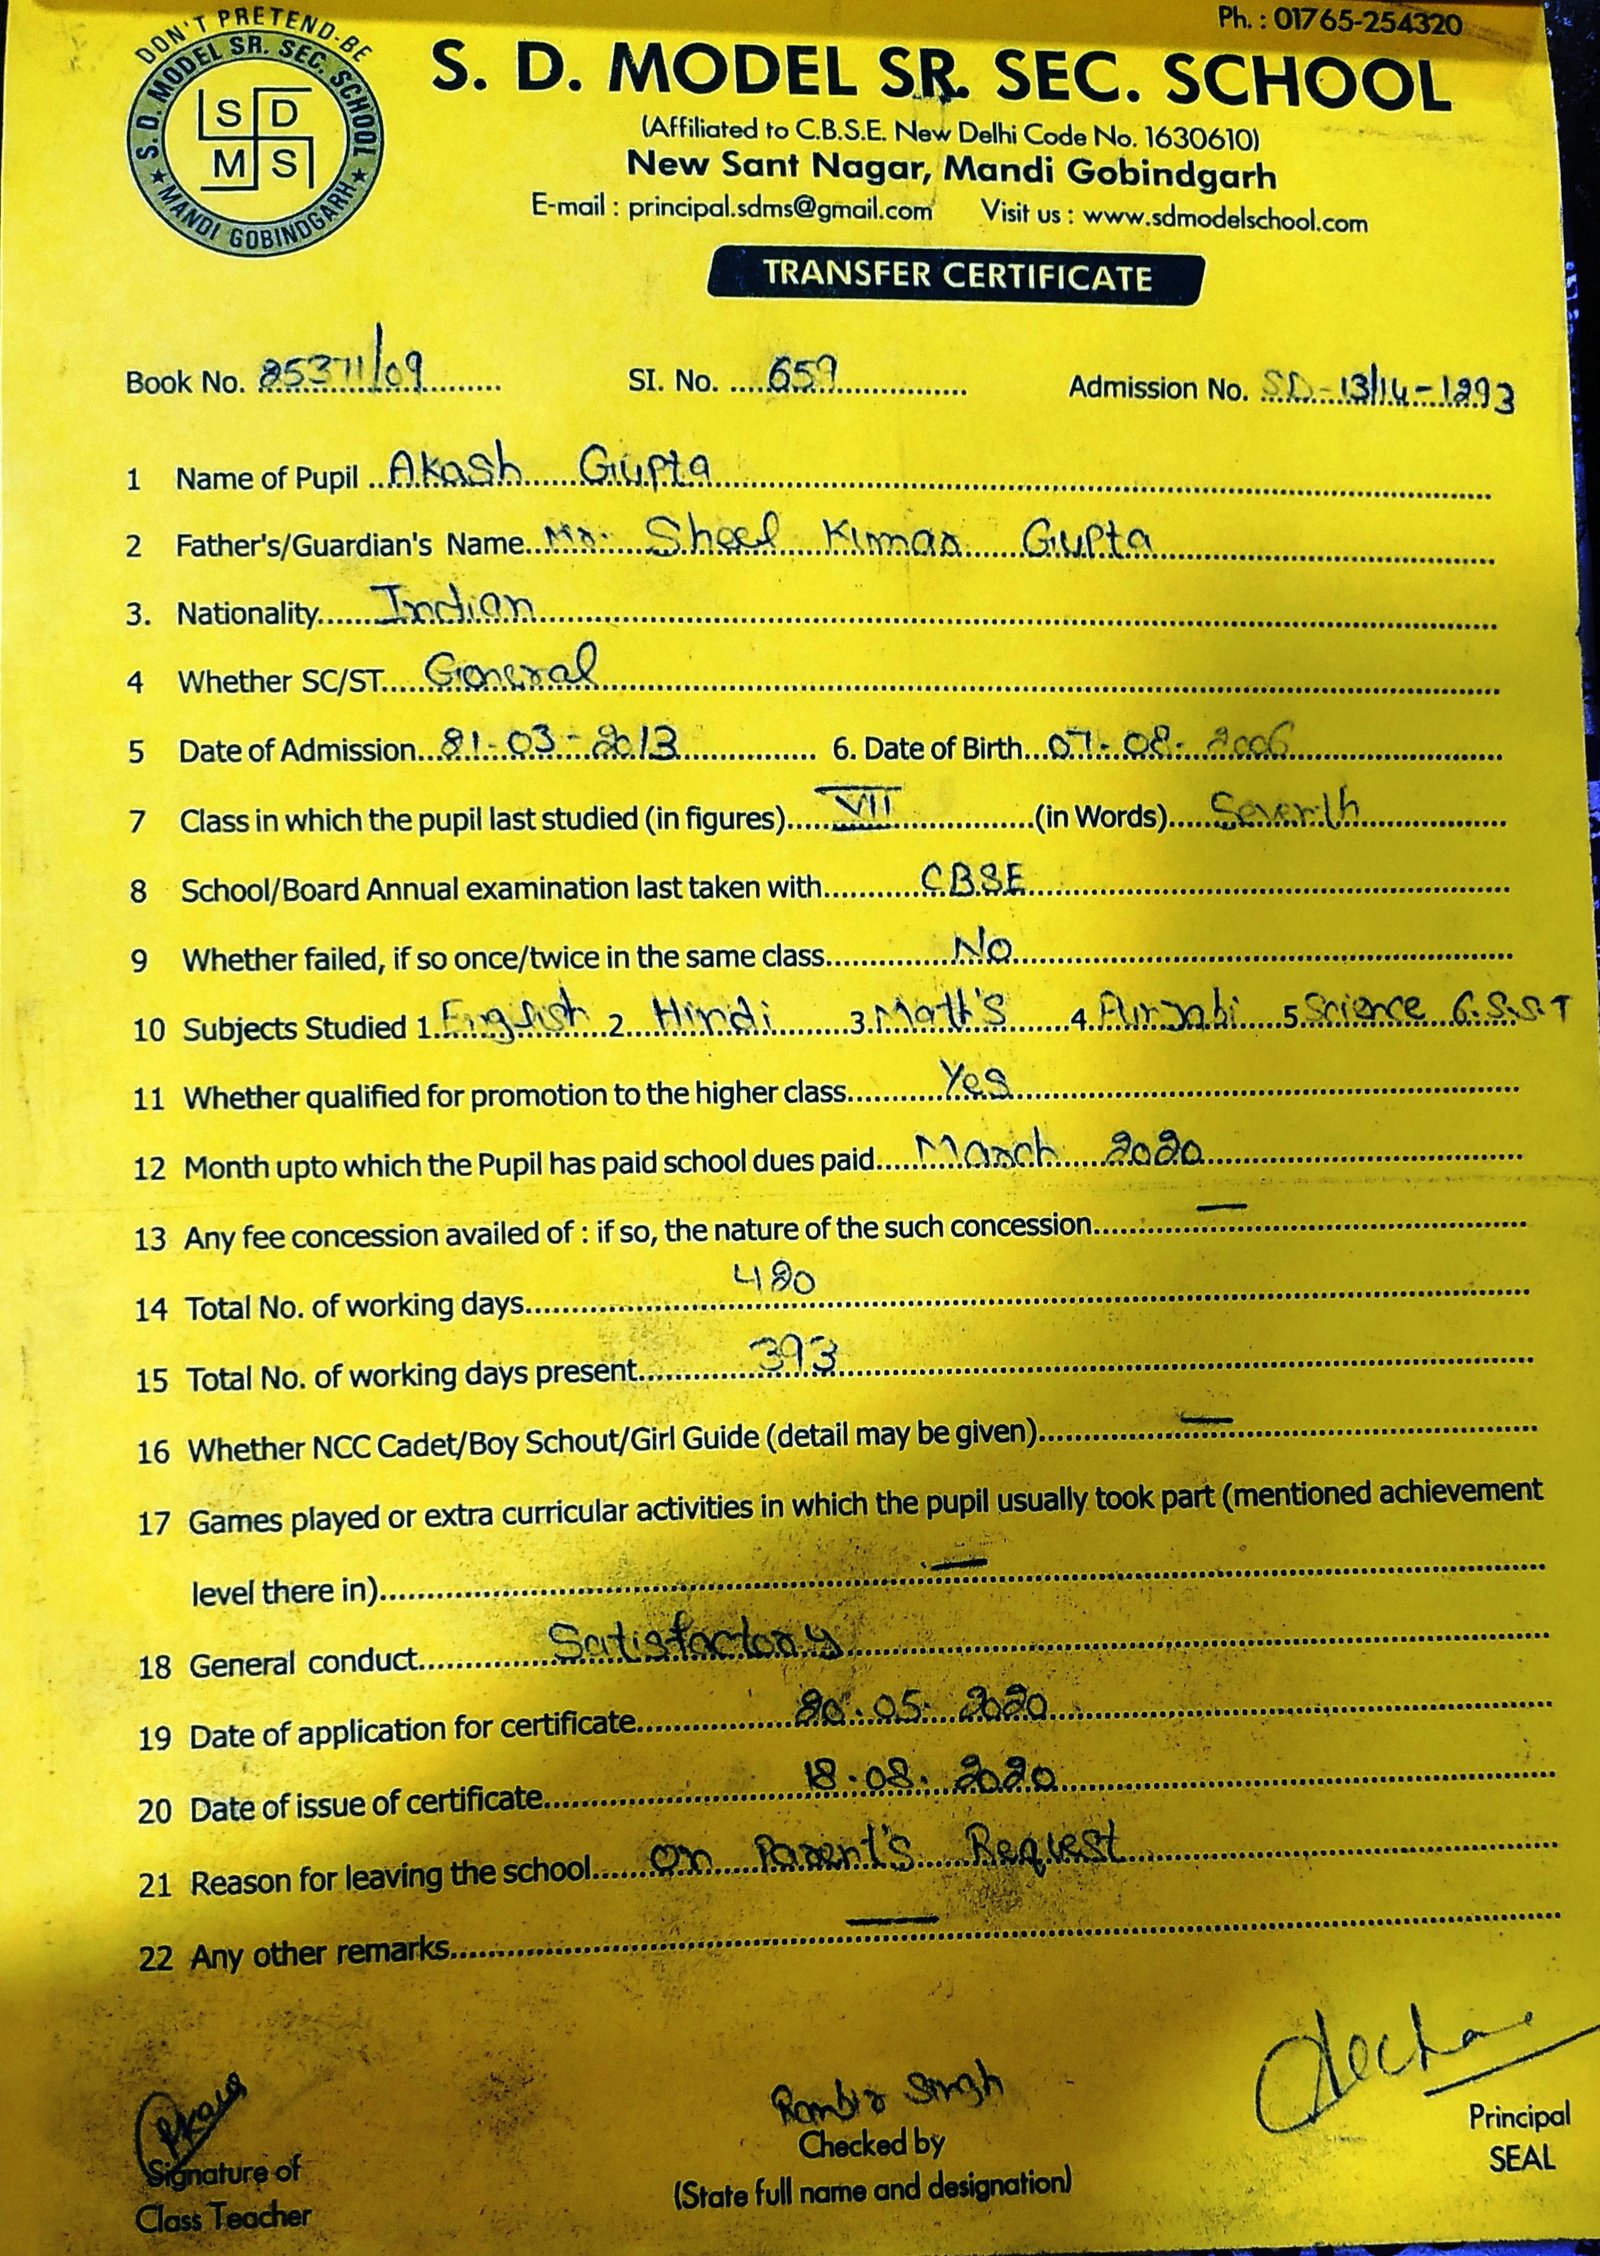 Ph. : 01765-254320
DON'T PRETEND-BE
S. D. MODEL SR. SEC. SCHOOL
★ MANDI GOBINDGARH ★
S D
M S
S. D. MODEL SR. SEC. SCHOOL
(Affiliated to C.B.S.E. New Delhi Code No. 1630610)
New Sant Nagar, Mandi Gobindgarh
E-mail : principal.sdms@gmail.com Visit us : www.sdmodelschool.com
TRANSFER CERTIFICATE
Book No. 25371/09 SI. No. 659 Admission No. SD-13/14-1293
1 Name of Pupil Akash Gupta
2 Father's/Guardian's Name Mr. Sheel Kumar Gupta
3. Nationality Indian
4 Whether SC/ST General
5 Date of Admission 21-03-2013 6. Date of Birth 07-08-2006
7 Class in which the pupil last studied (in figures) VII (in Words) Seventh
8 School/Board Annual examination last taken with CBSE
9 Whether failed, if so once/twice in the same class No
10 Subjects Studied 1. English 2. Hindi 3. Math's 4. Punjabi 5. Science 6. S.S.T
11 Whether qualified for promotion to the higher class Yes
12 Month upto which the Pupil has paid school dues paid March 2020
13 Any fee concession availed of : if so, the nature of the such concession —
14 Total No. of working days 420
15 Total No. of working days present 393
16 Whether NCC Cadet/Boy Schout/Girl Guide (detail may be given) —
17 Games played or extra curricular activities in which the pupil usually took part (mentioned achievement
level there in) —
18 General conduct Satisfactory
19 Date of application for certificate 20.05.2020
20 Date of issue of certificate 18.08.2020
21 Reason for leaving the school on Parent's Request
22 Any other remarks —
Singh
Signature of
Class Teacher
Checked by
(State full name and designation)
Principal
SEAL